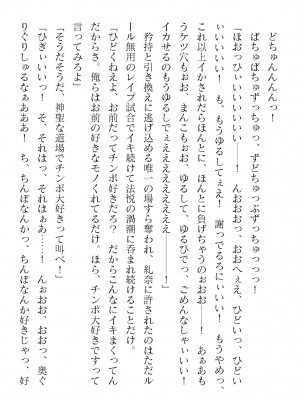 どちゅんんんっ！
ばちゅばちゅずっちゅっ、ずどちゅっぷずっちゅっっっ！
「ほおっひぃいいいい――！ んおおおっ、おおへぇえ、ひどいっ、ひどいいいいいい！ も、もうゆるしてぇえ！ 謝ってるろにぃいい！ もうやめっ、これ以上イかされたらほんとに、ほんとに負げちゃうのぉおお――！ あぁあもうケツ穴もぉお、おまんこもぉお、ゆるして、ゆるひでっ、ごめんなしゃいい！ イカせるのもうゆるしでぇええええええええ――！」
矜持と引き換えに逃げ込める唯一の場すら奪われ、糺奈に許されたのはただルール無用のレイプ試合でイキ続けて法悦の渦潮に呑まれ続けることだけ。
「ひどくねえよ、お前だってチンポ好きだろ？ だからこんなにイキまくってんだからさ。俺らはお前の好きなモノくれてるだけ。ほら、チンポ大好きですって言ってみろよ」
「そうだそうだ、神聖な道場でチンポ大好きって叫べ！」
「ひぎぃいいっ！ そ、それはっ、それはぁあ……！ んぉおお、おおっ、奥ぐりぐりしゅるなぁあああ！ ち、ちんぽなんかっ、ちんぽなんか好きじゃっ、好